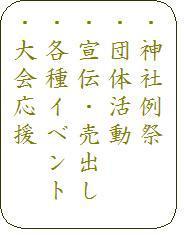 ・神社例祭
・団体活動
・宣伝・売出し
・各種イベント
・大会応援